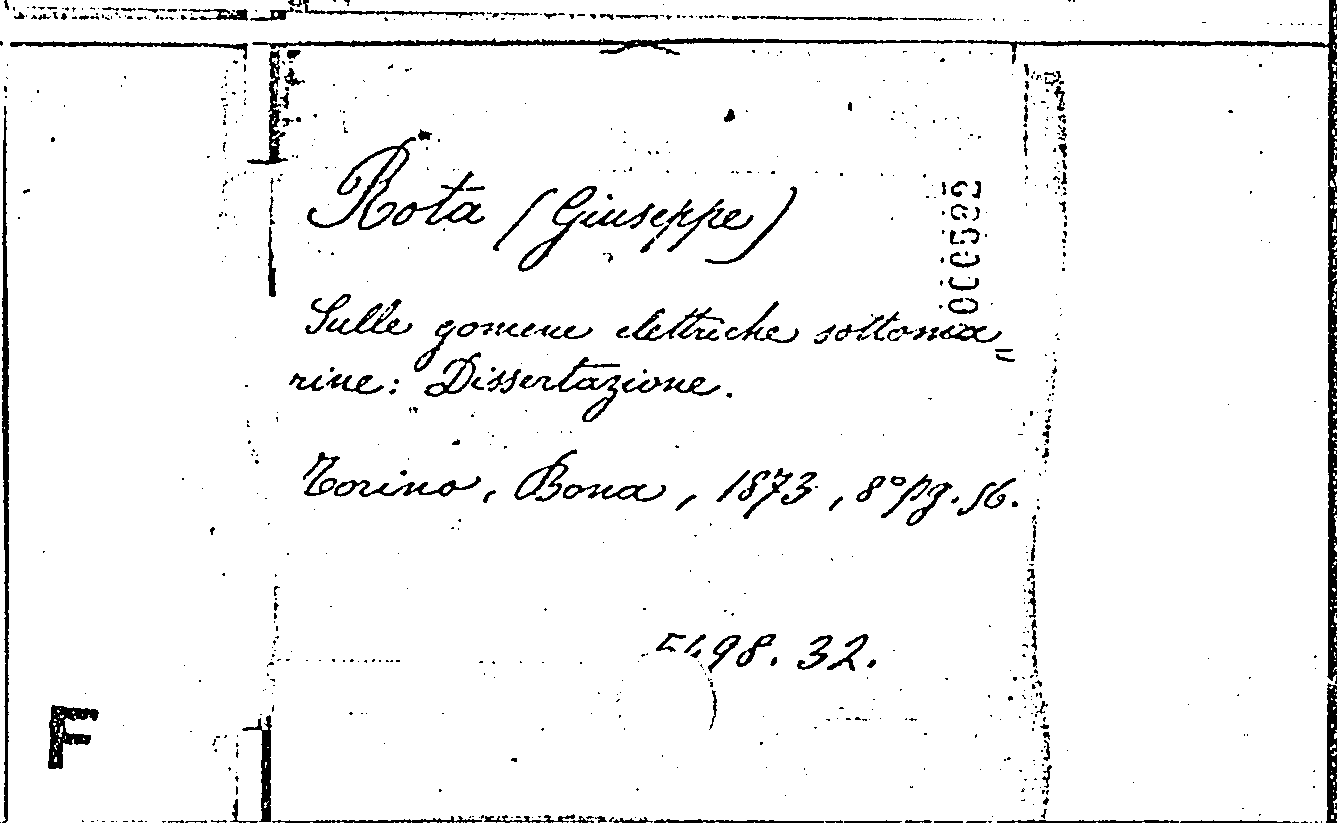 Rota (Giuseppe)
000592
Sulle gomene elettriche sottoma=
rine: Dissertazione.
Torino, Bona, 1873, 8° pg. 56.
5498. 32.
F